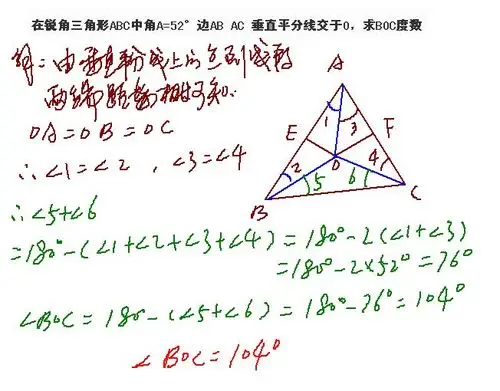 在锐角三角形ABC中角A=52° 边AB AC 垂直平分线交于O,求BOC度数
解:由垂直平分线上的点到线段
两端距离相等可知.
OA=OB=OC
∴∠1=∠2 , ∠3=∠4
∴∠5+∠6
=180°-(∠1+∠2+∠3+∠4)=180°-2(∠1+∠3)
=180°-2×52°=76°
∠BOC=180°-(∠5+∠6)=180°-76°=104°
∠BOC=104°
A
1
3
E
F
O
2
5
6
4
B
C